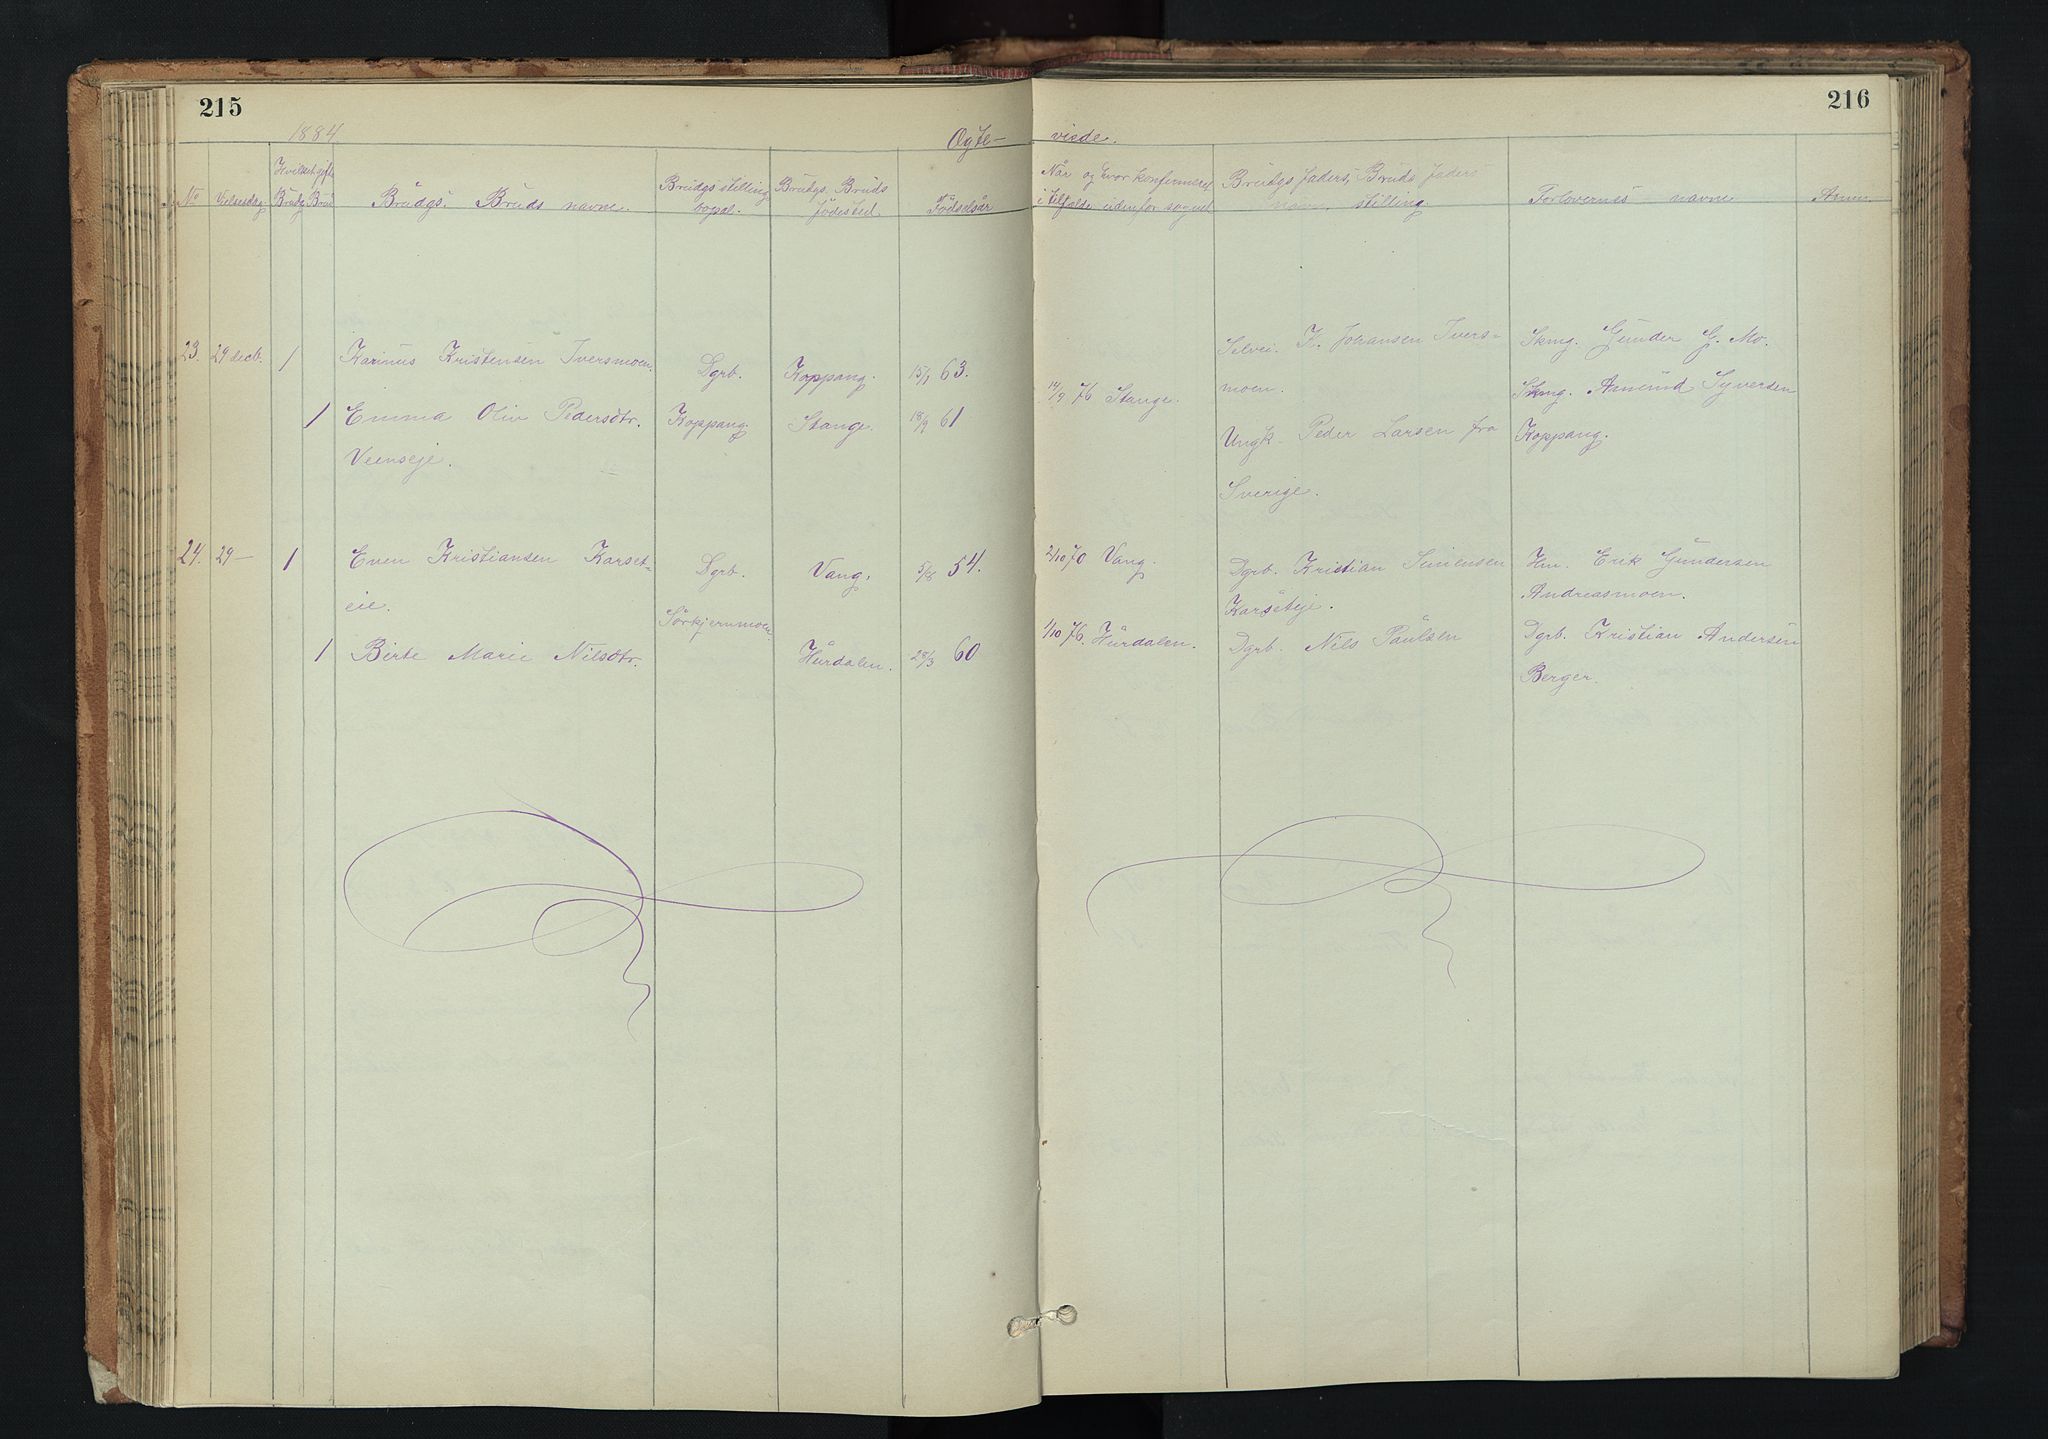 215
216
1884
Ægte-
viede.
No
Vielsesdag
Hvilket gifte
Brudg. Brud
Brudgs. Bruds navne.
Brudgs stilling bopæl.
Brudgs. Bruds fødested.
Fødselsår
Når og hvor konfirmeret i tilfælde udenfor sognet
Brudgs faders, Bruds faders navn, stilling.
Forlovernes navne
Anm.
23. 29 decb. 1 Karinus Kristensen Iversmoen. Dgrb. Koppang. 15/1 63.
1 Emma Oliv Pedersdtr. Koppang. Stange. 18/9 61
14/9 76 Stange.
Selvei. K. Johansen Ivers-
moen.
Ungk. Peder Larsen fra
Sverige.
Skmg. Gunder G. Mo.
Skmg. Asmund Syversen
Koppang.
24. 29 — 1 Even Kristiansen Karset-
eie.
Dgrb.
Sørkjernmoen
Vang. 5/8 54.
1 Birte Marie Nilsdtr. Hurdalen. 28/3 60
2/10 70 Vang.
1/10 76. Hurdalen.
Dgrb. Kristian Simensen
Karseteje.
Dgrb. Nils Paulsen
Hm. Erik Gundersen
Andreasmoen.
Dgrb. Kristian Andersen
Berger.